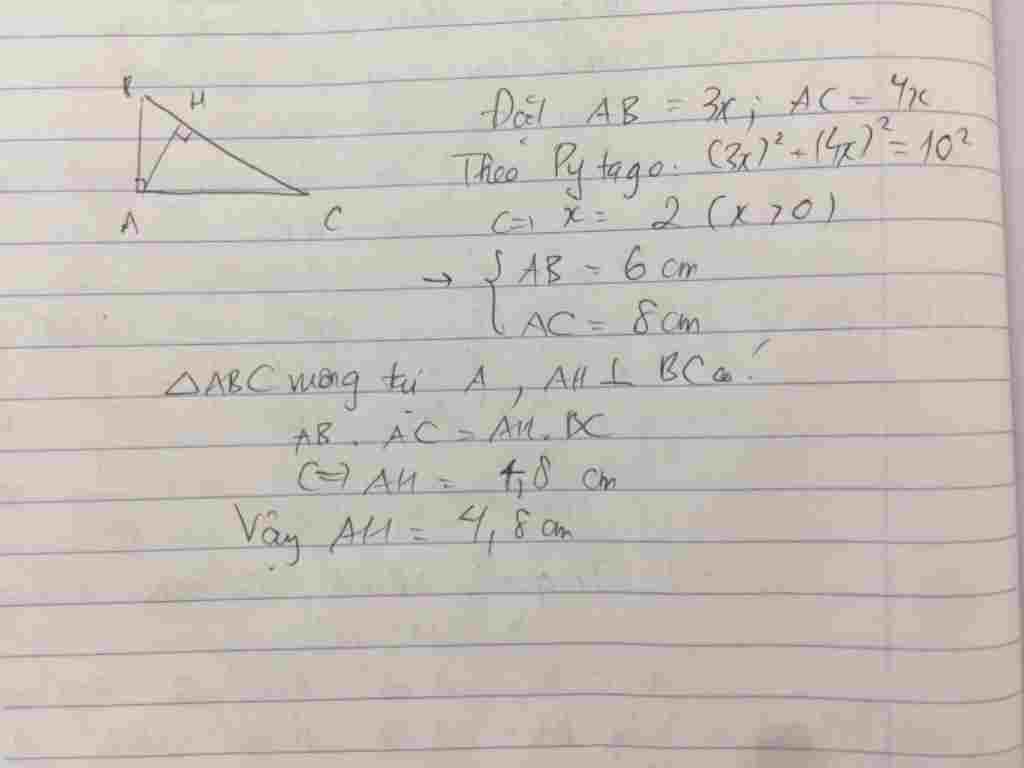 B H
A C
Đặt AB = 3x; AC = 4x
Theo Pytago: (3x)² + (4x)² = 10²
<=> x = 2 (x > 0)
→ { AB = 6 cm
AC = 8 cm
△ABC vuông tại A, AH ⊥ BC có:
AB . AC = AH . BC
<=> AH = 4,8 cm
Vậy AH = 4,8 cm